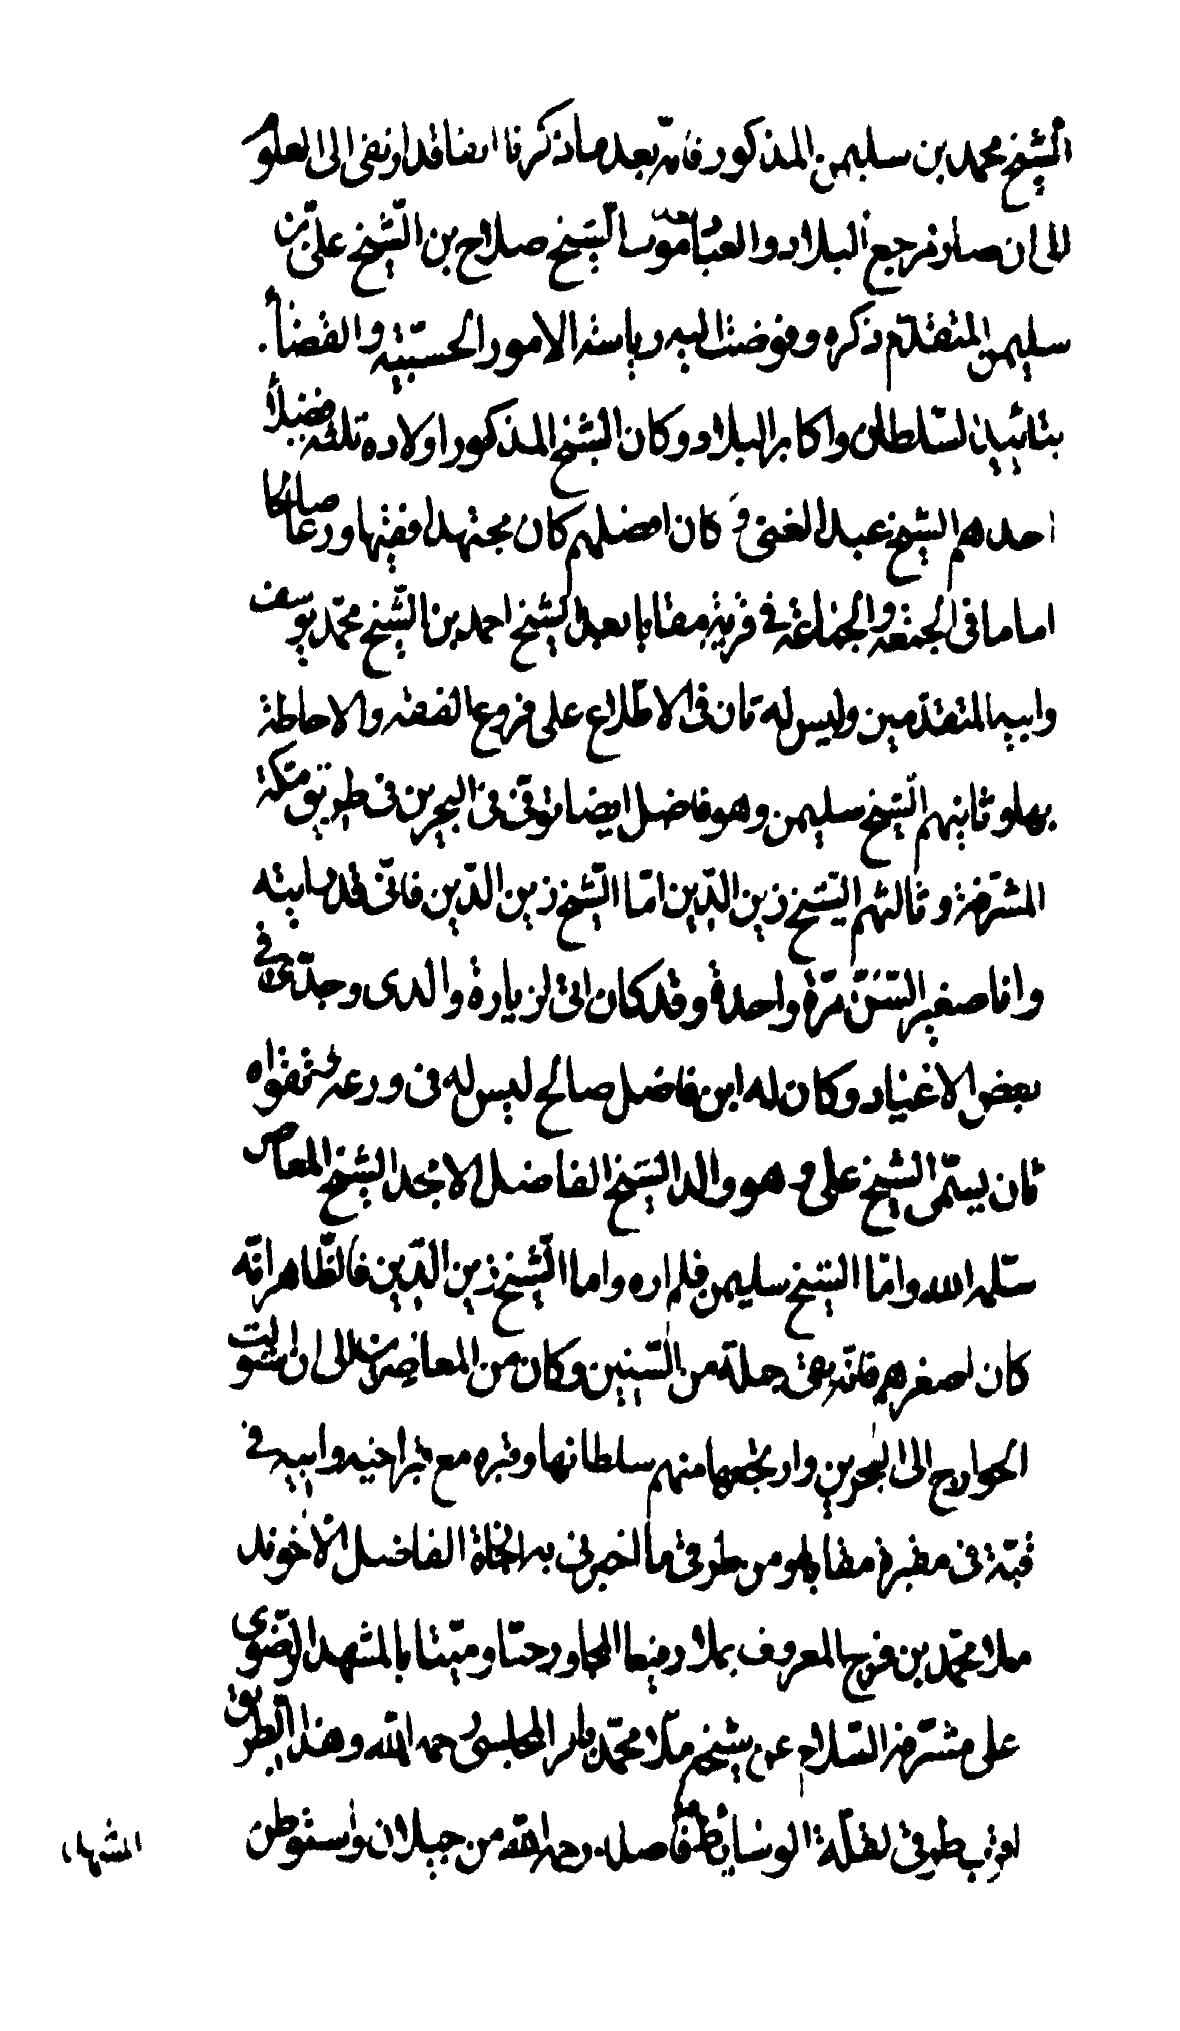 الشيخ محمد بن سليمن المذكور فانه بعد ما ذكرنا ايضا قد ارتقى الى العلو
الى ان صار مرجع البلاد والعباد بعد موت الشيخ صلاح بن الشيخ علي بن
سليمن المتقدم ذكره وفوضت اليه رياسة الامور الحسبية والقضاء
بتائيد السلطان واكابر البلاد وكان الشيخ المذكور اولاده ثلثه فضلاء
احدهم الشيخ عبد الغنى و كان افضلهم كان مجتهدا فقيها ورعا صالحا
اماما فى الجمعه والجماعة فى قرية مقابا بعد الشيخ احمد بن الشيخ محمد يوسف
وابيه المتقدمين وليس له ثان فى الاطلاع على فروع الفقه والاحاطة
بها وثانيهم الشيخ سليمن وهو فاضل ايضا توفى فى البحرين فى طريق مكة
المشرفة وثالثهم الشيخ زين الدين اما الشيخ زين الدين فانى قد رايته
وانا صغير السن مرة واحدة وقد كان اتى لزيارة والدى وجدى فى
بعض الاعياد وكان له ابن فاضل صالح ليس له فى ورعه وتقواه
ثان يسمى الشيخ على و هو والد الشيخ الفاضل الامجد الشيخ المعاصر
سلمه الله واما الشيخ سليمن فلم اره واما الشيخ زين الدين فالظاهر انه
كان اصغرهم فانه بقى جملة من السنين وكان من المعاصرين الى ان استولت
الخوارج الى البحرين وارتجعها منهم سلطانها وقبره مع قبر اخيه وابيه فى
قبة فى مقبرة مقابا ومن طرقى ما اخبرنى به اجازة الفاضل الاخوند
ملا محمد بن فرج المعروف بملا رفيعا المجاور حيا وميتا بالمشهد الرضوى
على مشرفه السلام عن شيخه ملا محمد باقر المجلسى رحمه الله وهذا الطريق
اقرب طرقى لقلة الوسايط فاضل رحمه الله من جيلان واستوطن
المشهد